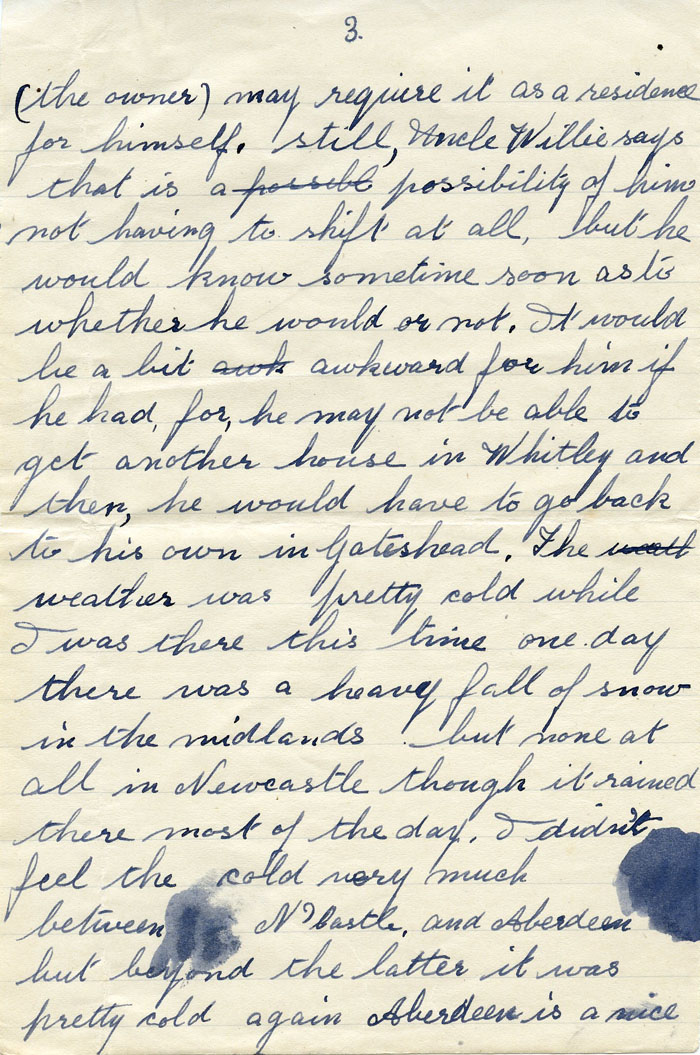 3.
(the owner) may require it as a residence
for himself. still, Uncle Willie says
that is a possibl possibility of him
not having to shift at all, but he
would know sometime soon as to
whether he would or not. It would
be a bit awk awkward for him if
he had, for, he may not be able to
get another house in Whitley and
then, he would have to go back
to his own in Gateshead. The weat
weather was pretty cold while
I was there this time one day
there was a heavy fall of snow
in the midlands but none at
all in Newcastle though it rained
there most of the day. I didn't
feel the cold very much
between N'Castle, and Aberdeen
but beyond the latter it was
pretty cold again Aberdeen is a nice